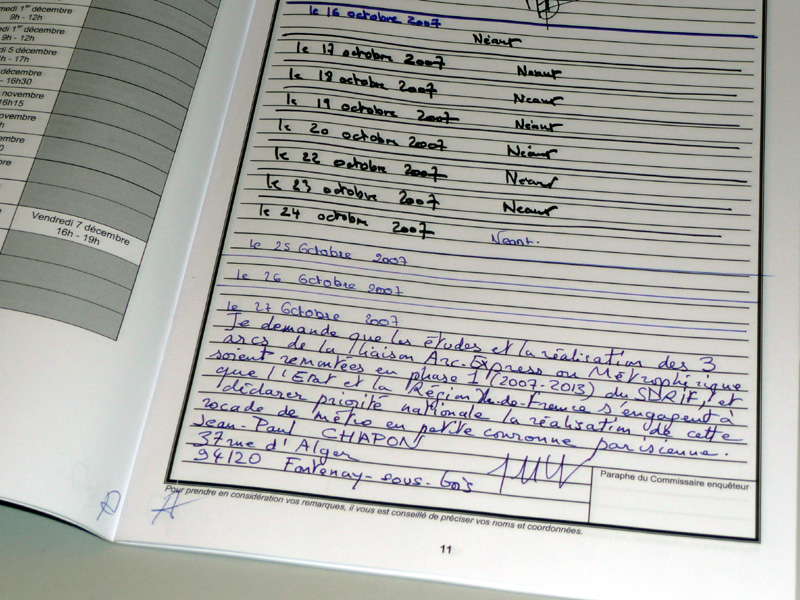 medi 1er décembre
9h - 12h
edi 1er décembre
9h - 12h
di 5 décembre
h - 17h
décembre
- 16h30
novembre
16h15
novembre
h
embre
0
bre
Vendredi 7 décembre
16h - 19h
le 16 octobre 2007
Néant
le 17 octobre 2007 Néant
le 18 octobre 2007 Néant
le 19 octobre 2007 Néant
le 20 octobre 2007 Néant
le 22 octobre 2007 Néant
le 23 octobre 2007 Néant
le 24 octobre 2007 Néant.
le 25 octobre 2007
le 26 octobre 2007
le 27 octobre 2007
Je demande que les études et la réalisation des 3
arcs de la liaison Arc-Express ou Métrophérique
soient remontées en phase 1 (2007-2013) du SDRIF, et
que l'Etat et la Région Ile-de-France s'engagent à
déclarer priorité nationale la réalisation de cette
rocade de métro en petite couronne parisienne.
Jean-Paul CHAPON
37 rue d'Alger
94120 Fontenay-sous-Bois
Paraphe du Commissaire enquêteur
Pour prendre en considération vos remarques, il vous est conseillé de préciser vos noms et coordonnées.
11